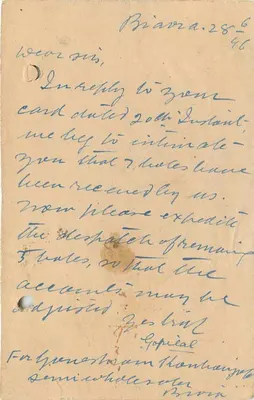 Biaora. 28/6/46
Dear sir,
In reply to your
card dated 20th Instant
we beg to intimate
you that 7 bales have
been received by us.
Now please expedite
the despatch of remaing
5 bales, so that the
accounts may be
adjusted.
Gopilal
For
semi wholesaler
Biora